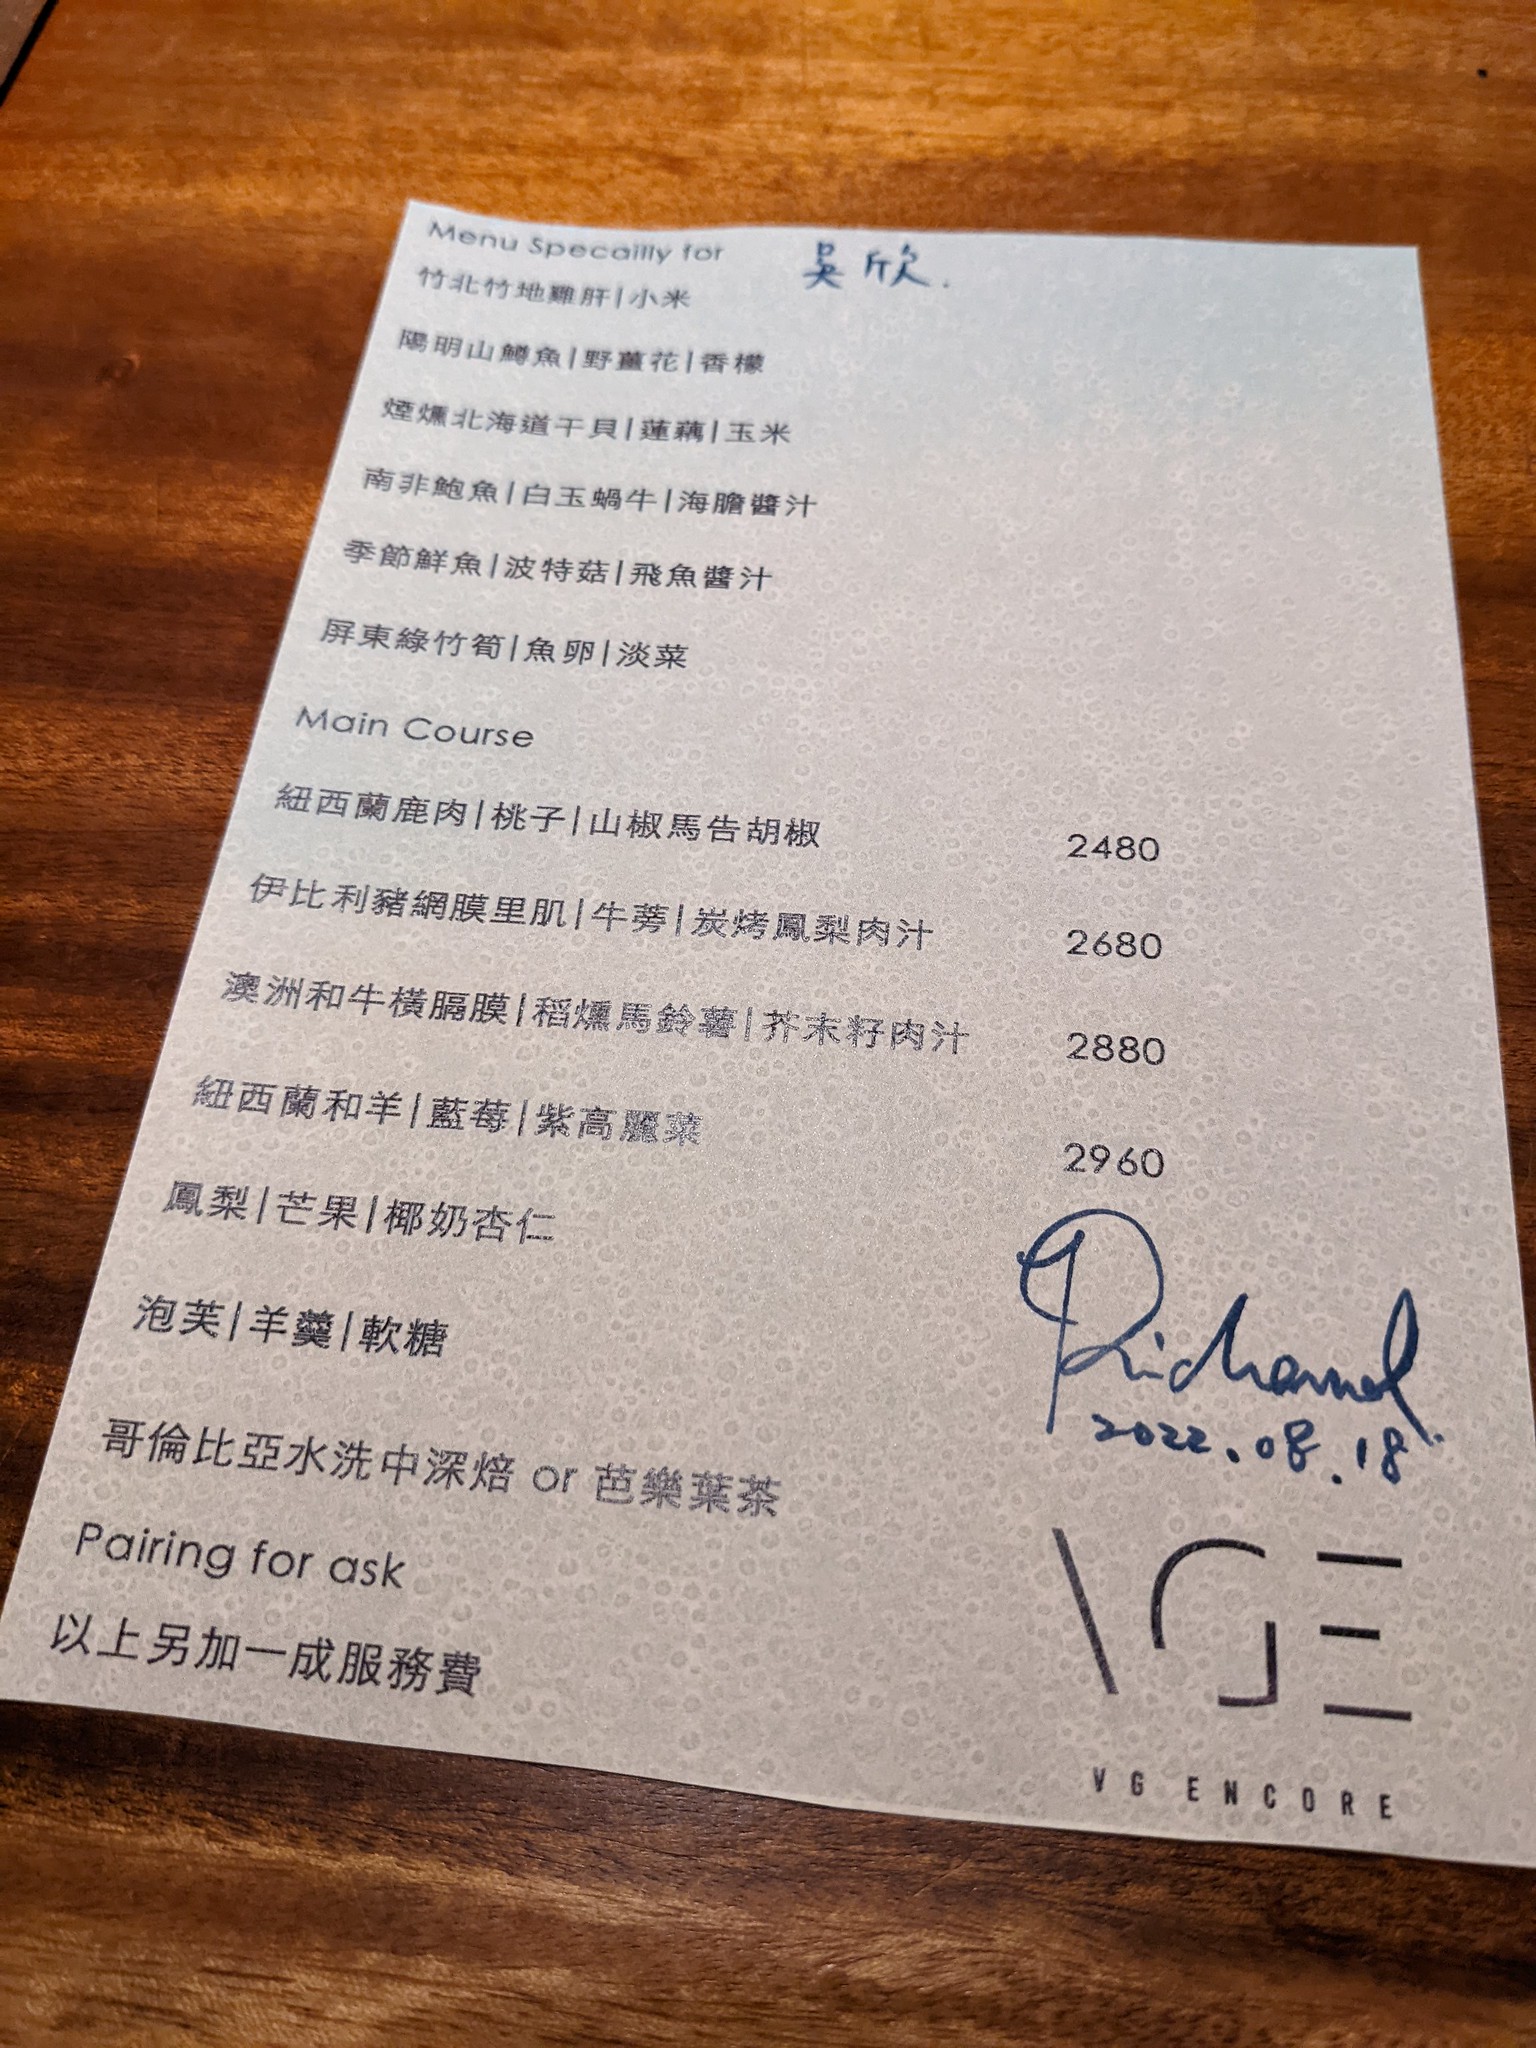 Menu Specailly for 吳欣.
竹北竹地雞肝|小米
陽明山鱒魚|野薑花|香檬
煙燻北海道干貝|蓮藕|玉米
南非鮑魚|白玉蝸牛|海膽醬汁
季節鮮魚|波特菇|飛魚醬汁
屏東綠竹筍|魚卵|淡菜
Main Course
紐西蘭鹿肉|桃子|山椒馬告胡椒 2480
伊比利豬網膜里肌|牛蒡|炭烤鳳梨肉汁 2680
澳洲和牛橫膈膜|稻燻馬鈴薯|芥末籽肉汁 2880
紐西蘭和羊|藍莓|紫高麗菜 2960
鳳梨|芒果|椰奶杏仁
泡芙|羊羹|軟糖
哥倫比亞水洗中深焙 or 芭樂葉茶
Pairing for ask
以上另加一成服務費
2022.08.18
VGE
VG ENCORE